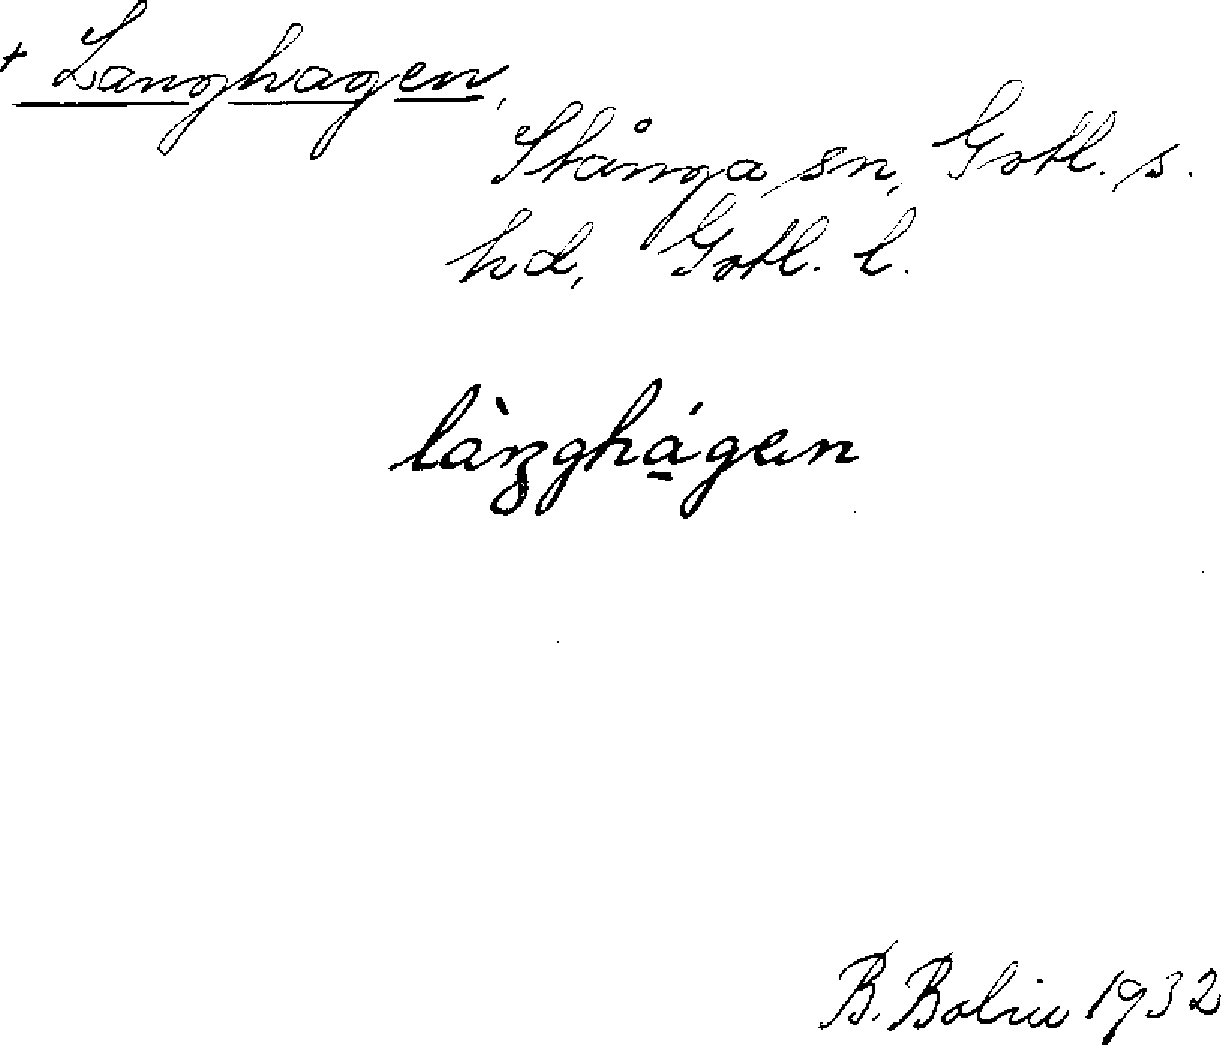 + Langhagen,
Stånga sn, Gotl. s.
hd, Gotl. l.
làŋghá̠gen
B. Bolin 1932